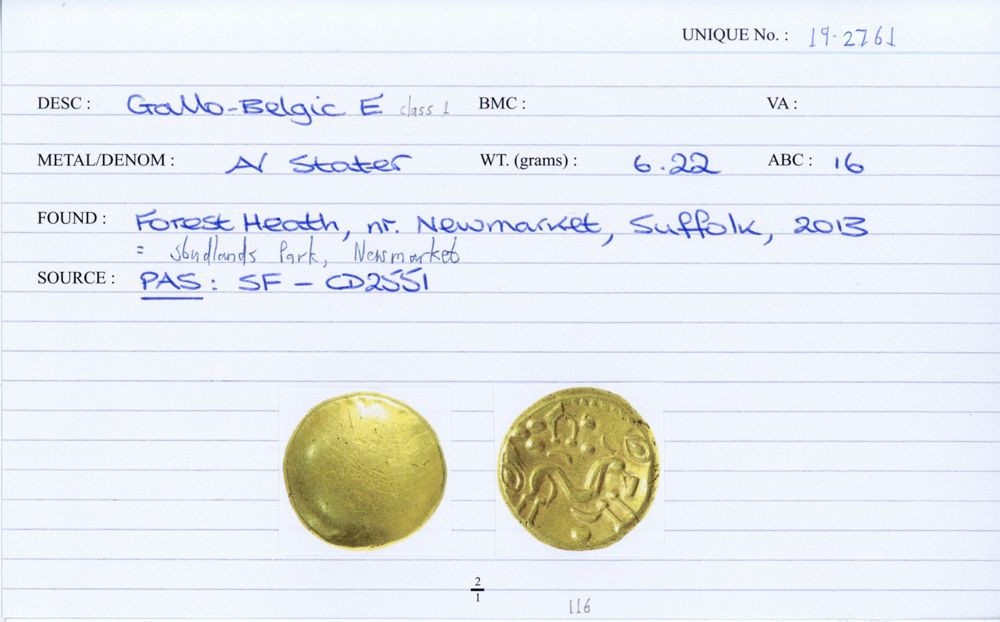 UNIQUE No. : 19-2761
DESC : Gallo-Belgic E class 1 BMC : VA :
METAL/DENOM : AV Stater WT. (grams) : 6.22 ABC : 16
FOUND : Forest Heath, nr. Newmarket, Suffolk, 2013
= Studlands Park, Newmarket
SOURCE : PAS : SF - CD2551
2
1
116